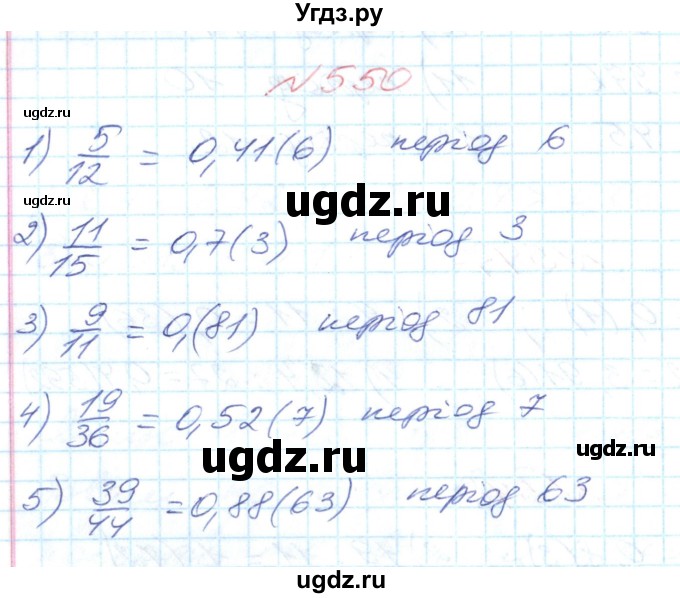 Угдз.ру
N 550
ugdz.ru
1) 5/12 = 0,41(6) період 6
ugdz.ru
ugdz.ru
2) 11/15 = 0,7(3) період 3
3) 9/11 = 0,(81) період 81
ugdz.ru
4) 19/36 = 0,52(7) період 7
ugdz.ru
ugdz.ru
5) 39/44 = 0,88(63) період 63
ugdz.ru